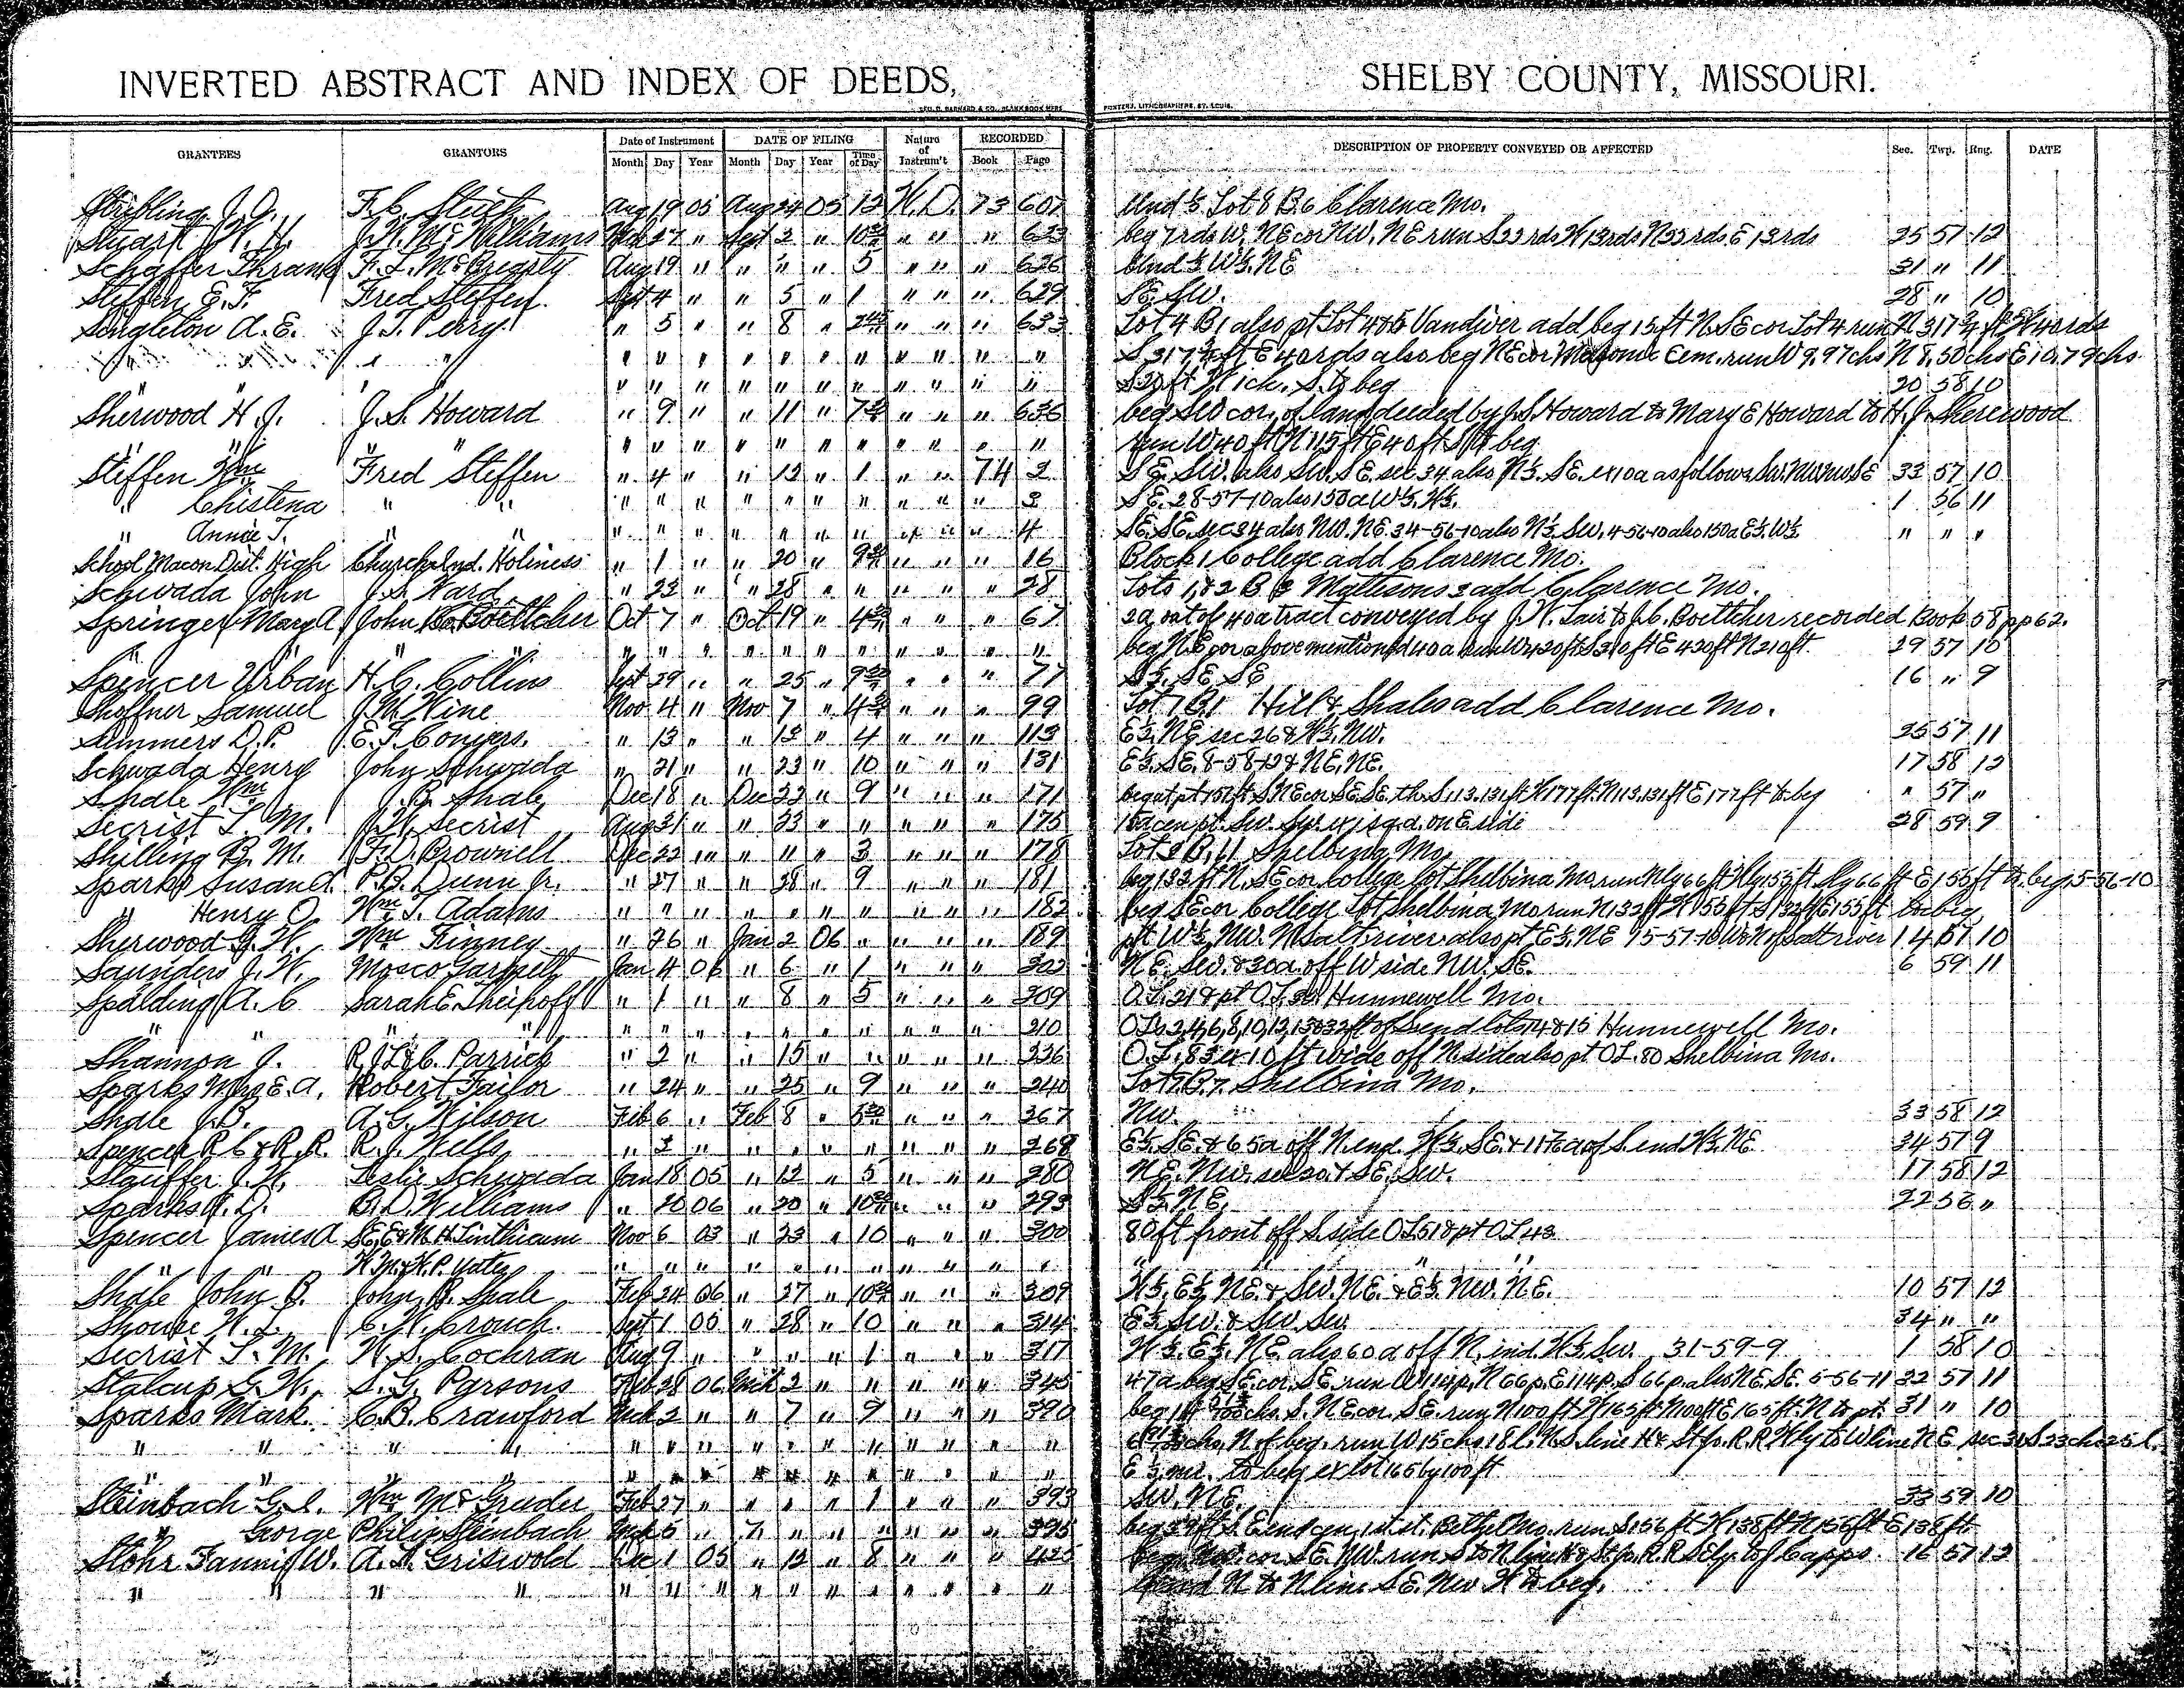 INVERTED ABSTRACT AND INDEX OF DEEDS, SHELBY COUNTY, MISSOURI.
GEO. D. BARNARD & CO., BLANK BOOK MFRS PRINTERS, LITHOGRAPHERS, ST. LOUIS.
GRANTEES GRANTORS Date of Instrument DATE OF FILING Nature of Instrum't RECORDED DESCRIPTION OF PROPERTY CONVEYED OR AFFECTED Sec. Twp. Rng. DATE
Month Day Year Month Day Year Time of Day Book Page
Stribling J. O. F. C. Aug 19 05 Aug 24 05 12 W.D. 73 607 Und ½ Lot 8 B. 6 Clarence Mo.
Stuart W. H. J. W. McWilliams 27 " Sept 2 " " " " 623 beg 7 rds W. NE cor NW. NE run S 22 rds W 13 rds N 22 rds E 13 rds 25 57 12
Schaffer Thrank F. L. McBrearty Aug 19 " " " " 5 " " " 626 Und ½ W½. NE 31 " 11
Steffen E. F. Fred Steffen Sept 4 " " 5 " 1 " " " 629 SE. SW. 28 " 10
Singleton A. E. J. T. Perry " 5 " " 8 " " " " 633 Lot 4 B. 1 also pt Lot 4 & 5 Vandiver add beg 15 ft N. SE cor Lot 4 run N 317¼ ft W 40 rds
" " " " " " " " " " " " S 317¼ ft E 40 rds also beg NE cor Masonic Cem. run W 9.97 chs N 8.50 chs E 10.79 chs
" " " " " " " " " " S 20 ft W ich. S. to beg 20 58 10
Sherwood H. J. J. S. Howard " 9 " " 11 " " " " 636 beg SW cor. of land deeded by J. S. Howard to Mary E Howard to H. J. Sherewood
" " " " " " " " " " " " run W 40 ft N 115 ft E 40 ft S to beg
Steffen Wm Fred Steffen " 4 " " 12 " 1 " " 74 2 SE. SW. also SW. SE sec 34 also N½. SE. ex 10a as follows SW. NW. NW SE 33 57 10
" Chistena " " " " " " " " " " " " 3 SE. 28-57-10 also 150a W½. W½. 1 56 11
" Annie T. " " " " " " " " " " " " 4 SE. SE. sec 34 also NW. NE. 34-56-10 also N½ SW. 4-56-10 also 150a E½. W½ " " "
School Macon Dist. High Church Ind. Holiness " 1 " " 20 " " " " 16 Block 1 College add Clarence Mo.
Schwada John J. S. Ward " 22 " " 28 " " " " " 28 Lots 1, & 2 B 2 Mattisons 2 add Clarence Mo.
Springer Mary A John C. Boettcher Oct 7 " Oct 19 " " " " 67 2a out of 40a tract conveyed by J. W. Lair to J. C. Boettcher recorded Book 58 pp 62.
" " " " " " " " " " " " " beg N. E cor above mentioned 40 a run W 420 ft S 210 ft E 420 ft N 210 ft. 29 57 10
Spencer Urban H. C. Collins Sept 29 " " 25 " " " " 77 S½. SE SE 16 " 9
Shoffner Samuel J. M. Hine Nov 4 " Nov 7 " " " " 99 Lot 7 B. 1 Hill & Shales add Clarence Mo.
Summers D. P. E. T. Conyers. " 13 " " 13 " 4 " " " 113 E½. NE sec 26 & W½. NW. 25 57 11
Schwada Henry John Schwada " 21 " " 23 " 10 " " " 131 E½. SE. 8-58-12 & NE. NE. 17 58 12
Shale Wm J. B. Shale Dec 18 " Dec 22 " 9 " " " 171 beg at pt 151 ft S. NE cor SE SE. th. S 113.131 ft W 177 ft. N 113.131 ft E 177 ft to beg " 57 "
Secrist T. M. J. W. Secrist Aug 31 " " 23 " " " " " 175 SW. SW. ex 1 sq. a. on E side 28 59 9
Shilling B. M. F. D. Brownell Dec 22 " " " " 3 " " " 178 Lot 8 B. 11 Shelbina Mo
Sparks Susan A. P. B. Dunn Jr. " 27 " " 28 " 9 " " " 181 beg 132 ft N. SE cor College Lot Shelbina Mo run Nly 66 ft Wly 155 ft. Sly 66 ft E 155 ft to beg. 5-56-10
" Henry O. Wm T. Adams " " " " " " " " " " 182 beg SE cor College Lot Shelbina, Mo run N 132 ft W 155 ft S 132 ft E 155 ft to beg
Sherwood G. W. Wm Finney " 26 " Jan 2 06 " " " " 189 pt W½ NW. N Salt river also pt E½. NE 15-57-10 W & N of salt river 14 57 10
Saunders J. W. Mosco Garnett Jan 4 06 " 6 " 1 " " " 202 NE. SW. & 30a. off W side NW. SE. 6 59 11
Spalding A. C Sarah E. Theihoff " 1 " " 8 " 5 " " " 209 O. L. 21 & pt O. L. 22 Hunnewell Mo.
" " " " " " " " " " " " " 210 O Ls 2,4,6,8,10,12,13 & 32 ft of S end lots 14 & 15 Hunnewell Mo.
Shannon J. R. J. L & C. Parrick " 2 " " 15 " " " " " 236 O. L. 83 ex 10 ft wide off N. side also pt OL. 80 Shelbina Mo.
Sparks Mrs E. A. Robert Tailor " 24 " " 25 " 9 " " " 240 Lot 7 B. 7. Shelbina Mo.
Shale J. B. A. G. Wilson Feb 6 " Feb 8 " " " " 267 NW. 33 58 12
Spencer R C & R. R. R. J. Wells " 2 " " " " " " " " 268 E½. SE. & 65a off N. end. W½. SE. & a of S. end W½. NE 34 57 9
Stauffer J. W. Leslie Schwada Jan 18 05 " 12 " 5 " " " 280 NE. NW. sec 20. & SE. SW. 17 58 12
Sparks J. D. B. D. Williams " 20 06 " 20 " " " 293 S½. NE. 22 56 "
Spencer James A S. E. & M. H. Linthicum Nov 6 03 " 23 " 10 " " " 300 80 ft front off S. side OL 51 & pt OL 43
" " W. M. & H. P. Yates " " " " " " " " " " " " " "
Shale John B. John B. Shale Feb 24 06 " 27 " " " " 309 W½. E½ NE. & SW. NE. & E½. NW. NE. 10 57 12
Shouse W. L. C. W. Crouch. Sept 1 05 " 28 " 10 " " " 314 E½. SW. & SW SW. 34 " "
Secrist T. M. W. S. Cochran Aug 9 " " " " 1 " " " 317 W½. E½. NE. also 60 a off N. end. W½. SW. 31-59-9 1 58 10
Stalcup G. W. S. G. Parsons Feb 28 06 Mch 2 " " " " " 345 47a beg SE cor. SE run W 114 p. N 66 p. E 114 p. S 66 p. also NE. SE. 5-56-11 32 57 11
Sparks Mark C. B. Crawford Mch 2 " " 7 " 9 " " " 390 chs. S. NE cor. SE. run N 100 ft W 165 ft N 100 ft E 165 ft. N to pt. 31 " 10
" " " " " " " " " " " " " " " chs. N. of beg. run W 15 chs 18 l. N. S. line H & St Jo. R. R Wly to W line NE sec 31 S 23 chs 25 l.
" " " " " " " " " " " " " E to beg ex lot 165 by 100 ft
Steinbach G. L. Wm McGruder Feb 27 " " " " 1 " " " 393 SW. NE. 33 59 10
" George Philip Steinbach Mch 5 " " 7 " " " " " 395 1st st. Bethel Mo. run S 156 ft W 138 ft N 156 ft E 138 ft.
Stohr Fannie W. A. S. Griswold Dec 1 05 " 12 " 8 " " " 425 beg. NW. cor SE. NW. run S to N line H & St Jo. R. R Sely. to J Capps. 16 57 12
" " " " " " " " " " " " " " " N to N line SE. NW W to beg.